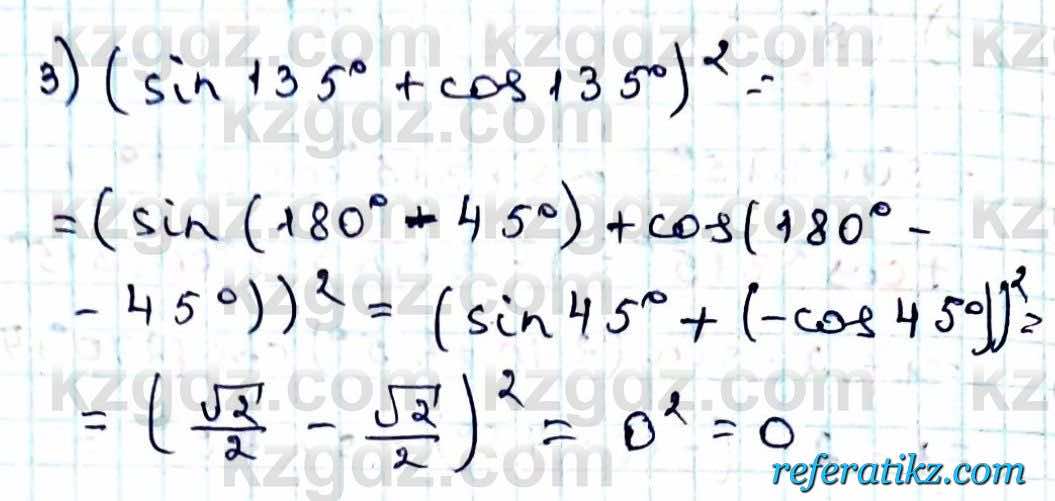 kzgdz.com kzgdz.com kz
3) (sin 135° + cos 135°)² =
kzgdz.com
= (sin (180° - 45°) + cos (180° -
kzgdz.com kzgdz.com kz
- 45°))² = (sin 45° + (-cos 45°))² =
kzgdz.com
kzgdz.com kzgdz.com kz
= (√2/2 - √2/2)² = 0² = 0.
kzgdz.com
referatikz.com